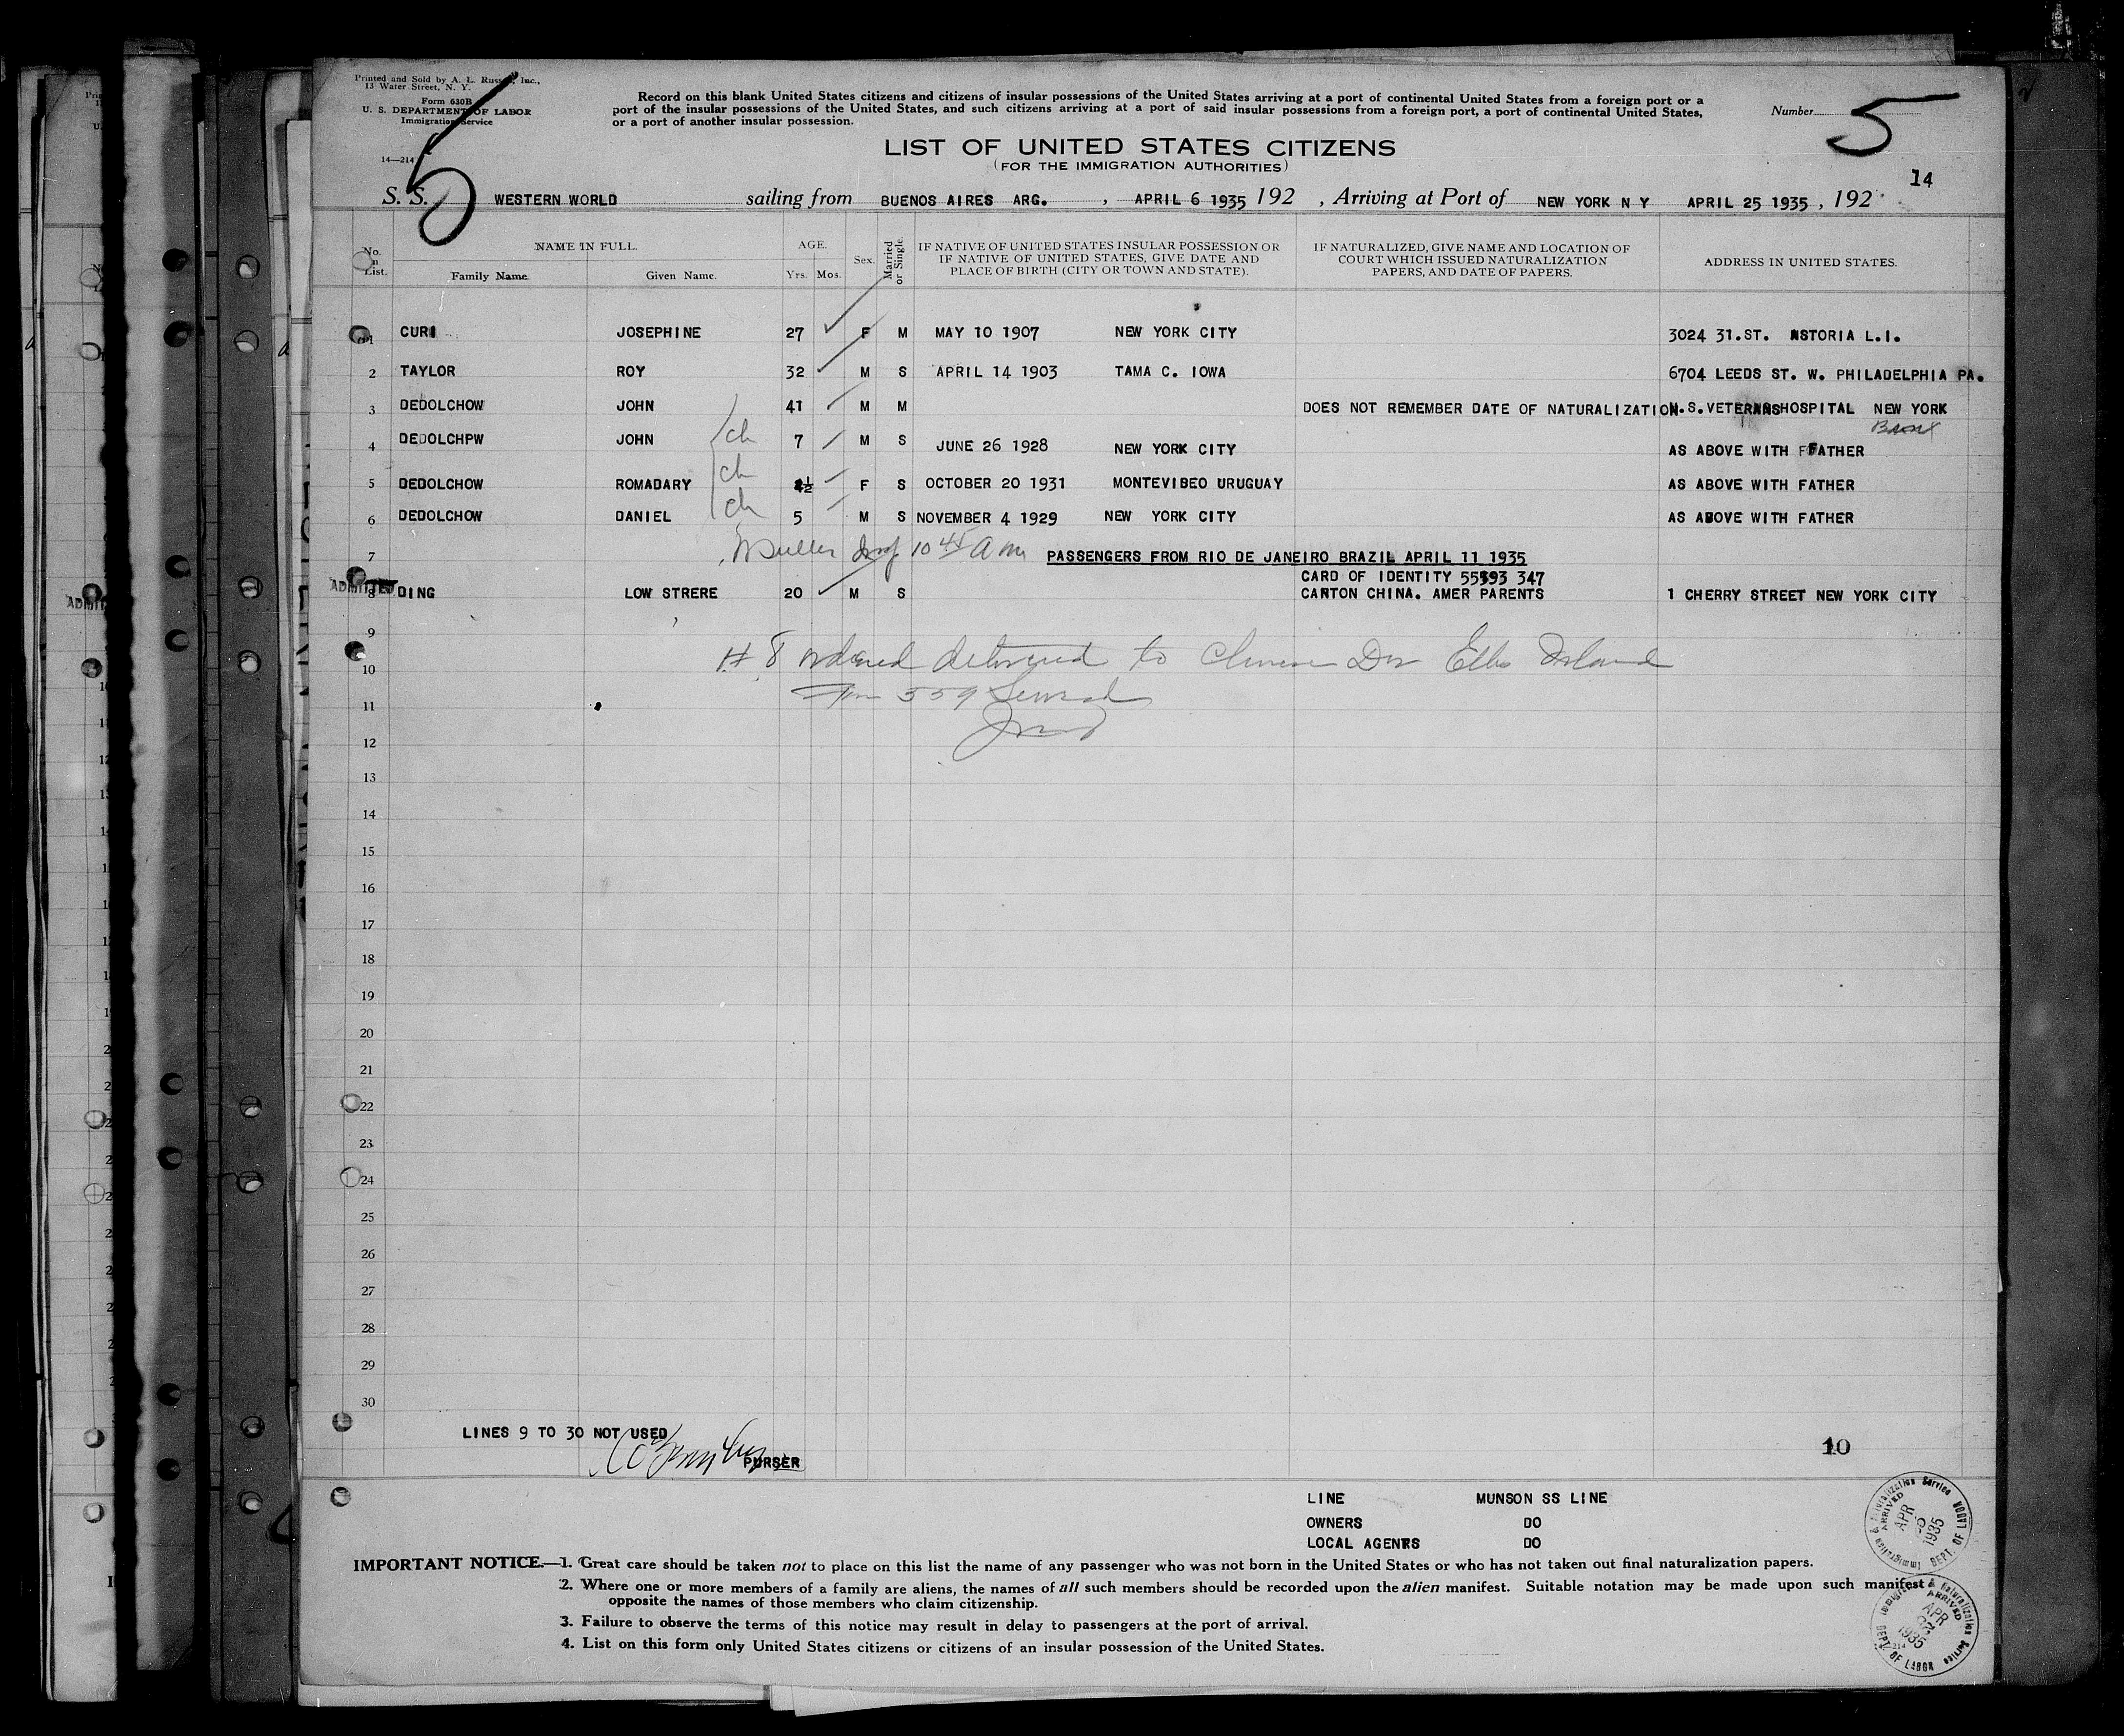 Printed and Sold by A. L. Russell, Inc.,
13 Water Street, N. Y.
Form 630B
U. S. DEPARTMENT OF LABOR
Immigration Service
14—214
5
Record on this blank United States citizens and citizens of insular possessions of the United States arriving at a port of continental United States from a foreign port or a
port of the insular possessions of the United States, and such citizens arriving at a port of said insular possessions from a foreign port, a port of continental United States,
or a port of another insular possession.
Number 5
LIST OF UNITED STATES CITIZENS
(FOR THE IMMIGRATION AUTHORITIES)
14
S. S. WESTERN WORLD sailing from BUENOS AIRES ARG. , APRIL 6 1935 192 , Arriving at Port of NEW YORK N Y APRIL 25 1935 , 192
No. in List. NAME IN FULL. AGE. Sex. Married or Single. IF NATIVE OF UNITED STATES INSULAR POSSESSION OR IF NATIVE OF UNITED STATES, GIVE DATE AND PLACE OF BIRTH (CITY OR TOWN AND STATE). IF NATURALIZED, GIVE NAME AND LOCATION OF COURT WHICH ISSUED NATURALIZATION PAPERS, AND DATE OF PAPERS. ADDRESS IN UNITED STATES.
Family Name. Given Name. Yrs. Mos.
1 CURI JOSEPHINE 27 F M MAY 10 1907 NEW YORK CITY 3024 31.ST. ASTORIA L.I.
2 TAYLOR ROY 32 M S APRIL 14 1903 TAMA C. IOWA 6704 LEEDS ST. W. PHILADELPHIA PA.
3 DEDOLCHOW JOHN 41 M M DOES NOT REMEMBER DATE OF NATURALIZATION U.S.VETERANS HOSPITAL NEW YORK
Bronx
4 DEDOLCHPW JOHN ch 7 M S JUNE 26 1928 NEW YORK CITY AS ABOVE WITH FATHER
5 DEDOLCHOW ROMADARY ch F S OCTOBER 20 1931 MONTEVIBEO URUGUAY AS ABOVE WITH FATHER
6 DEDOLCHOW DANIEL ch 5 M S NOVEMBER 4 1929 NEW YORK CITY AS ABOVE WITH FATHER
7 10 45 a m PASSENGERS FROM RIO DE JANEIRO BRAZIL APRIL 11 1935
CARD OF IDENTITY 55593 347
ADMITTED 8 DING LOW STRERE 20 M S CANTON CHINA. AMER PARENTS 1 CHERRY STREET NEW YORK CITY
9
# 8 ordered delivered to Chinese Div Ellis Island
10
559 served
11
12
13
14
15
16
17
18
19
20
21
22
23
24
25
26
27
28
29
30
LINES 9 TO 30 NOT USED
PURSER
10
LINE MUNSON SS LINE
OWNERS DO
LOCAL AGENTS DO
IMPORTANT NOTICE.—1. Great care should be taken not to place on this list the name of any passenger who was not born in the United States or who has not taken out final naturalization papers.
2. Where one or more members of a family are aliens, the names of all such members should be recorded upon the alien manifest. Suitable notation may be made upon such manifest
opposite the names of those members who claim citizenship.
3. Failure to observe the terms of this notice may result in delay to passengers at the port of arrival.
4. List on this form only United States citizens or citizens of an insular possession of the United States.
Immigration & Naturalization Service DEPT. OF LABOR
ARRIVED APR 1935
Immigration & Naturalization Service DEPT. OF LABOR
ARRIVED APR 1935